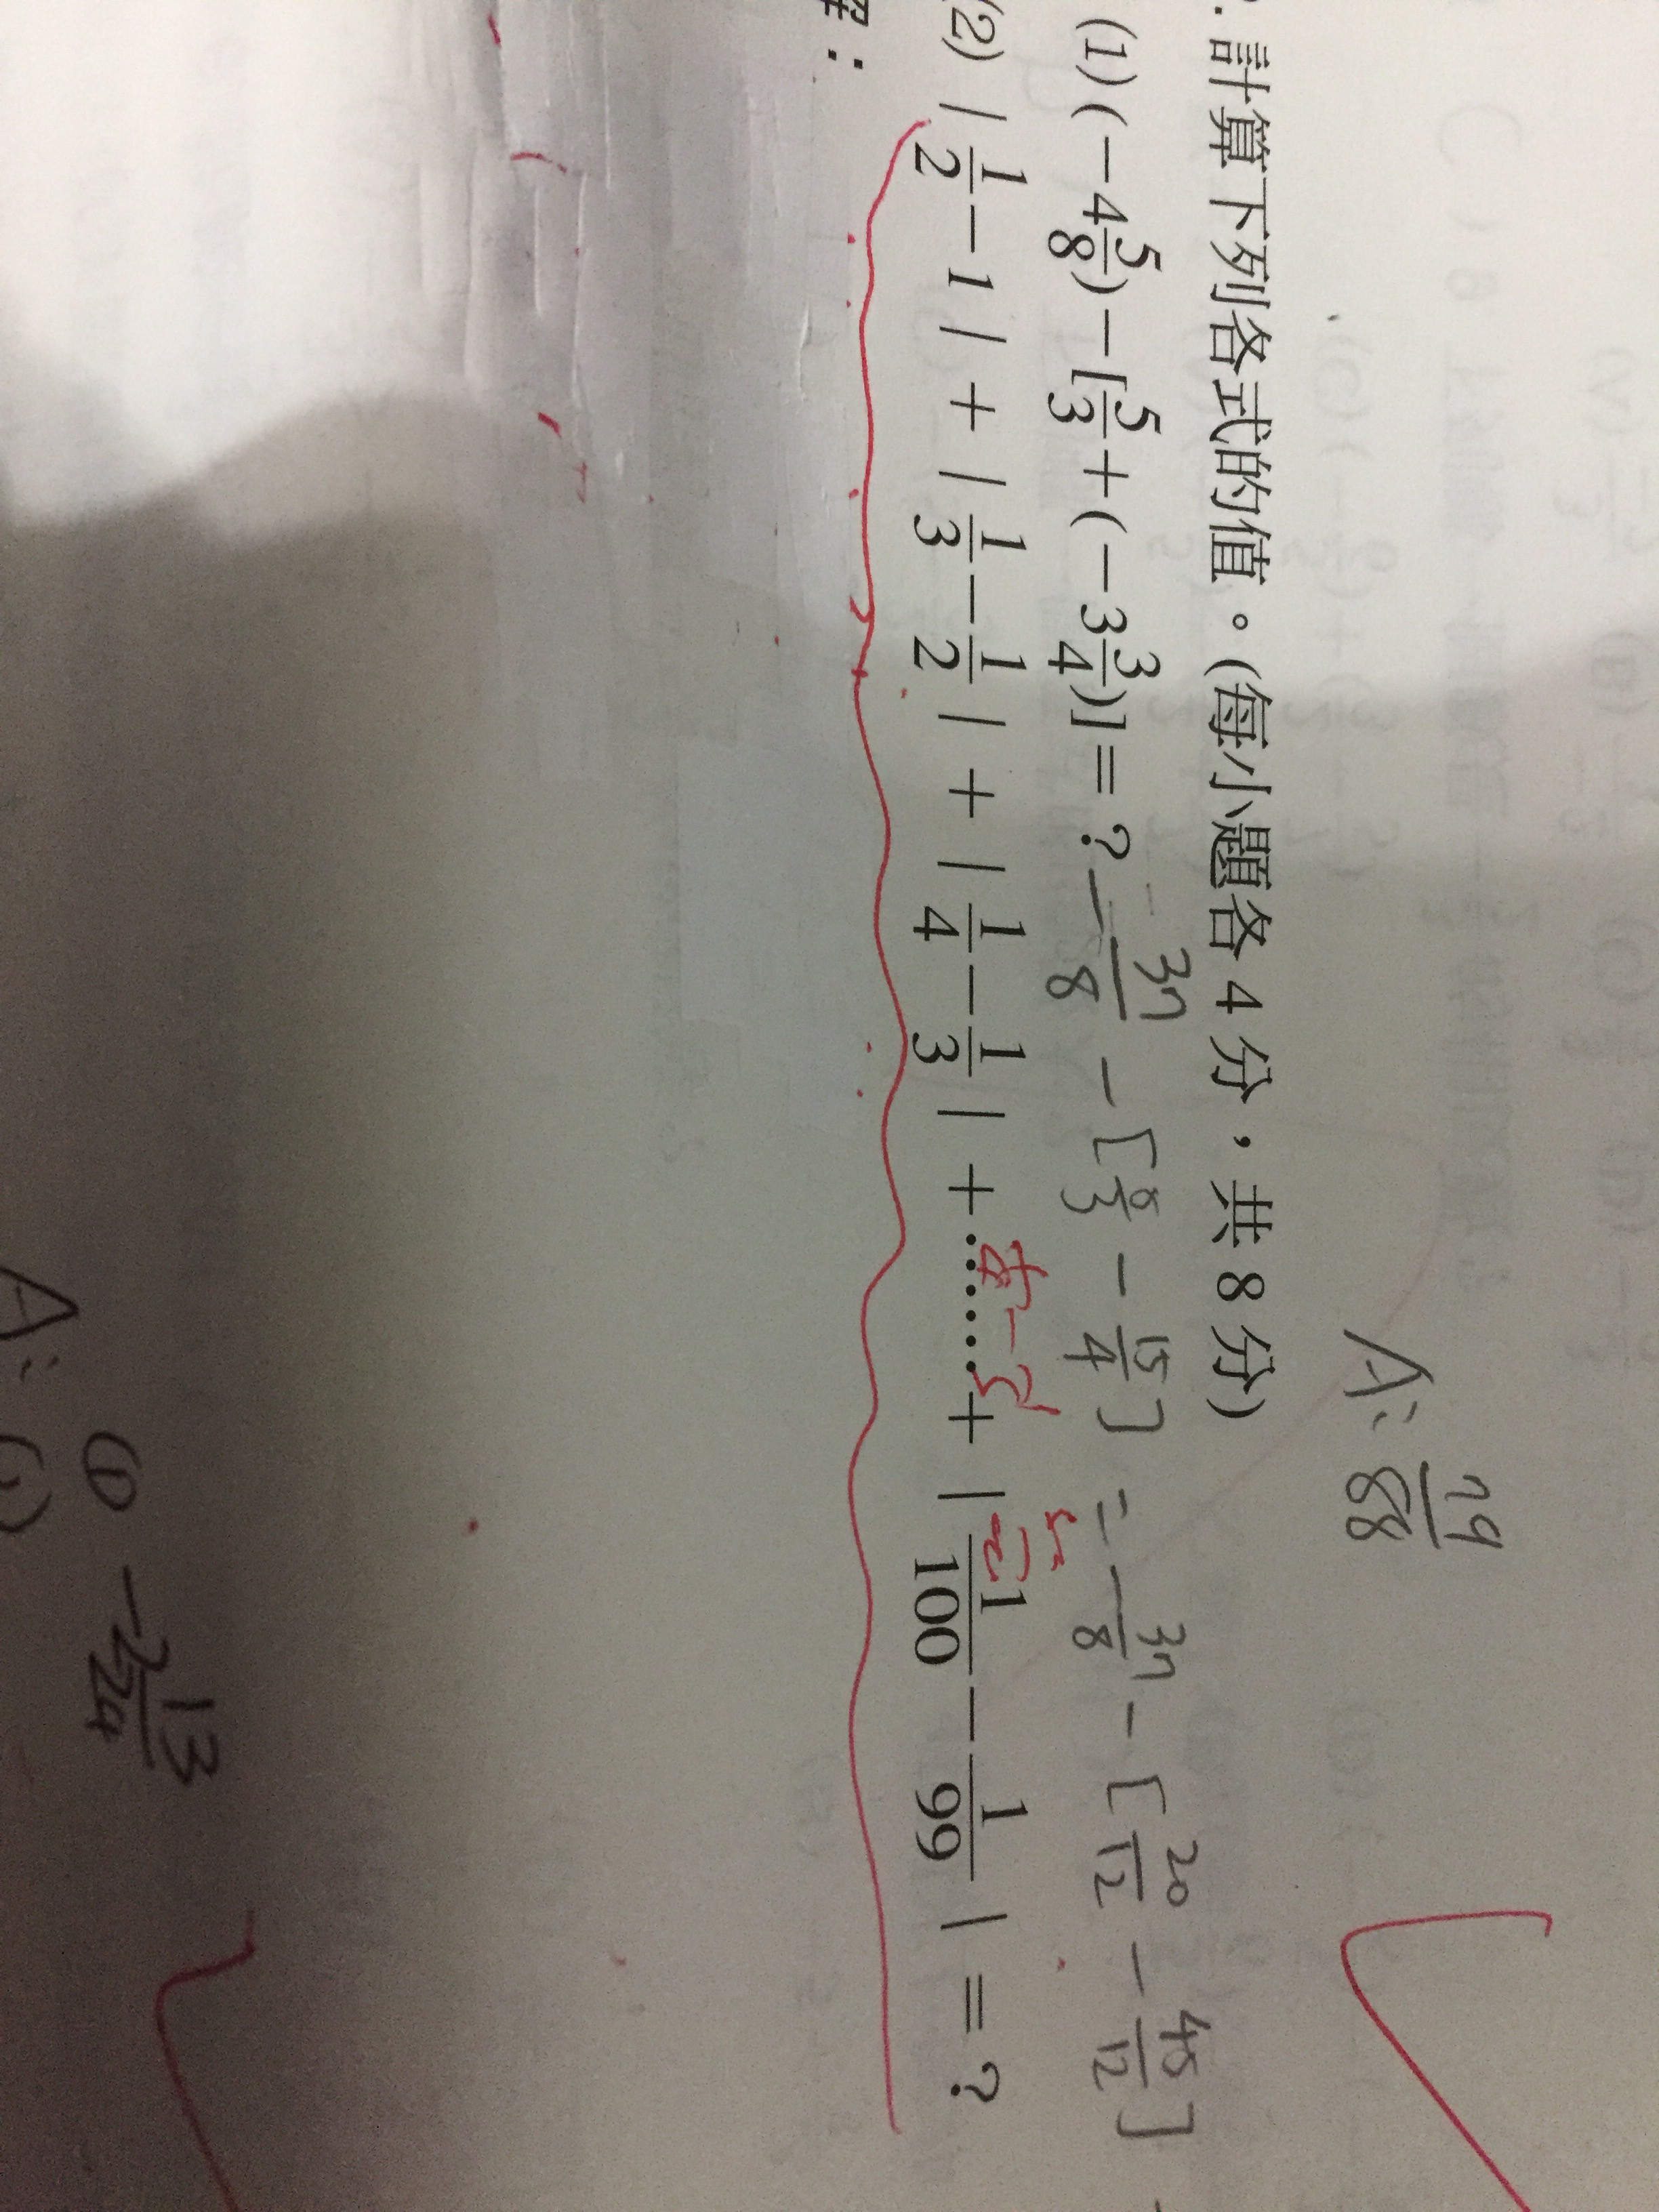 A: 79/88
. 計算下列各式的值。(每小題各 4 分，共 8 分)
(1) (−4 5/8) − [5/3 + (−3 3/4)] = ? − 37/8 − [5/3 − 15/4] = − 37/8 − [20/12 − 45/12]
(2) | 1/2 − 1 | + | 1/3 − 1/2 | + | 1/4 − 1/3 | + …… + | 1/100 − 1/99 | = ?
解：
(1) −2 13/24
A: